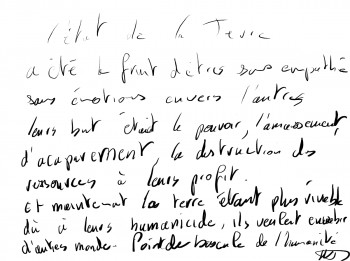 l'état de la Terre
a été le fruit d'êtres sans empathie
sans émotions envers l'autres
leurs but était le pouvoir, l'amassement,
d'acaparement, la destruction des
ressources à leurs profit.
Et maintenant la terre étant plus vivable
dû à leurs humanicide, ils veulent envahir
d'autres monde. Point de bascule de l'humanité